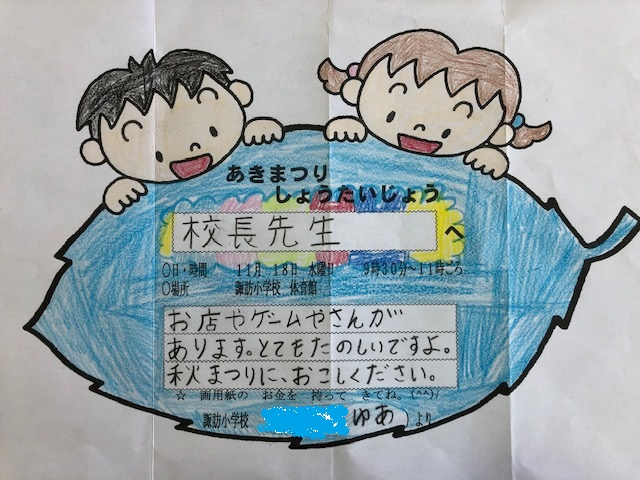 あきまつり
しょうたいじょう
校長先生 へ
○日・時間 11月 18日 水曜日 9時30分~11時ごろ
○場所 諏訪小学校 体育館
お店やゲームやさんが
あります。とてもたのしいですよ。
秋まつりに、おこしください。
☆ 画用紙の お金を 持って きてね。(^^)/
諏訪小学校 ゆあ ) より